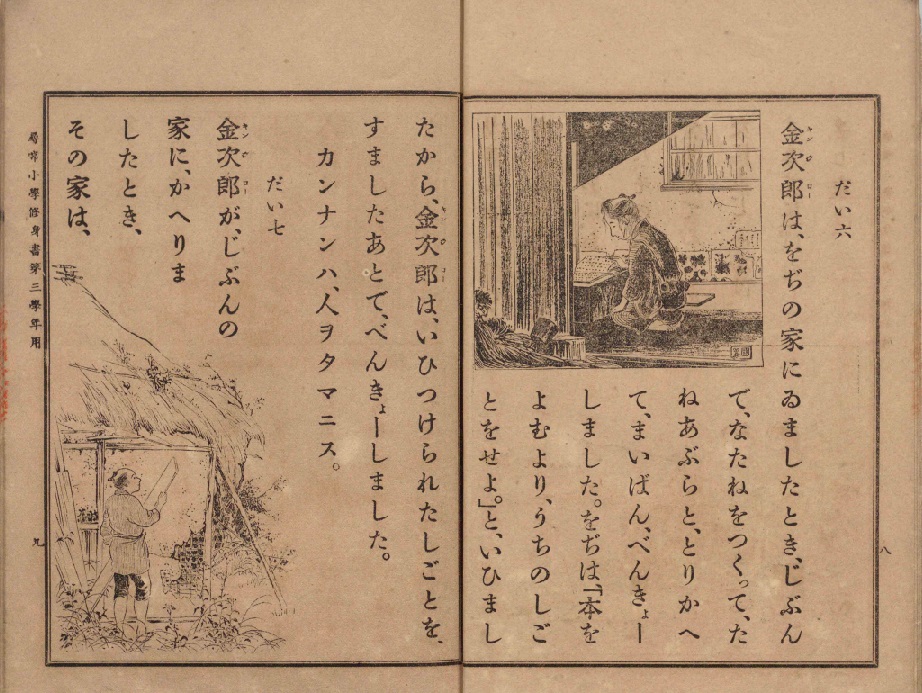 だい六
金次郎は、をぢの家にゐましたとき、じぶん
で、なたねをつくって、た
ねあぶらと、とりかへ
て、まいばん、べんきょー
しました。をぢは「本を
よむより、うちのしご
とをせよ。」と、いひまし
八
たから、金次郎は、いひつけられたしごとを、
すましたあとで、べんきょーしました。
カンナンハ、人ヲタマニス。
だい七
金次郎が、じぶんの
家に、かへりま
したとき、
その家は、
尋常小學修身書第三學年用
九